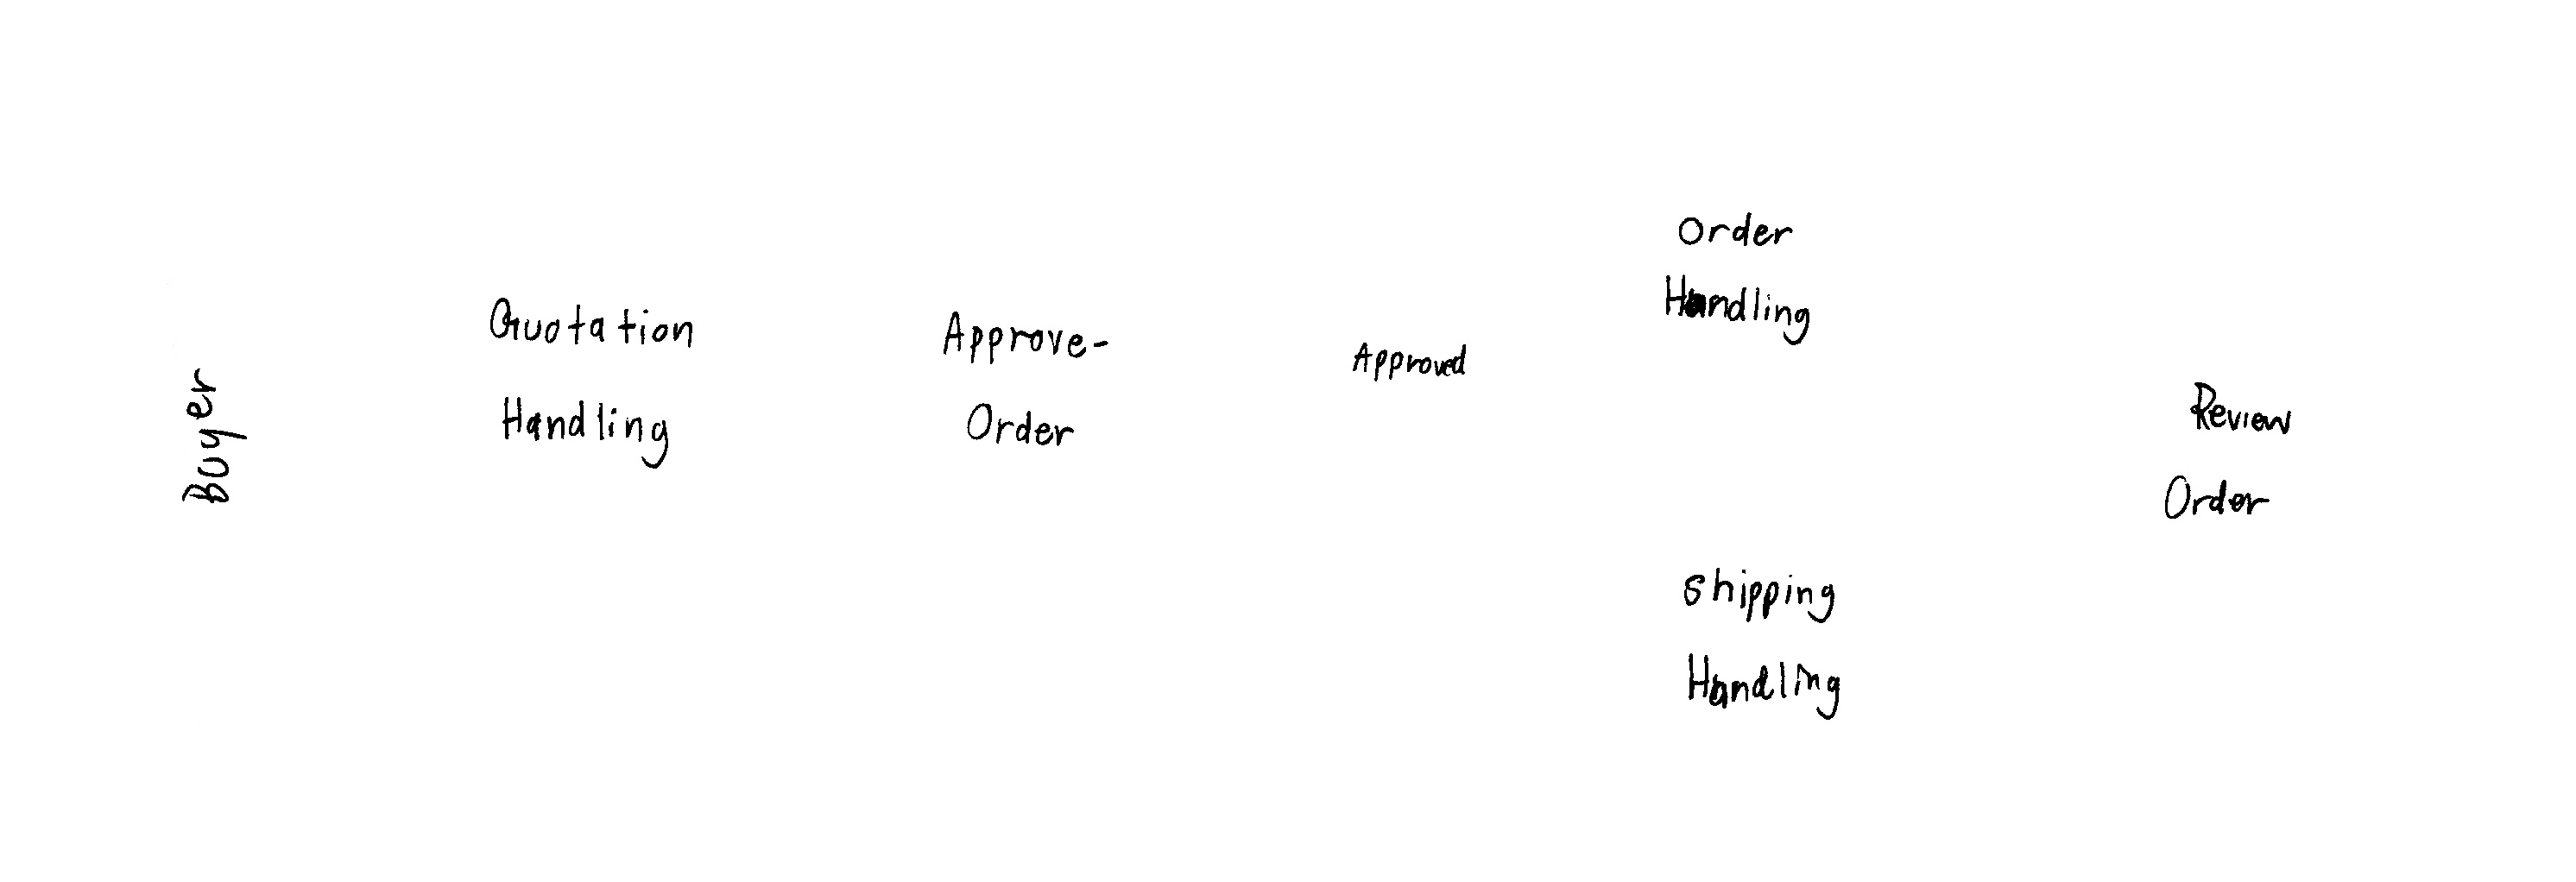 Buyer
Quotation
Handling
Approve-
Order
Approved
Order
Handling
Shipping
Handling
Review
Order